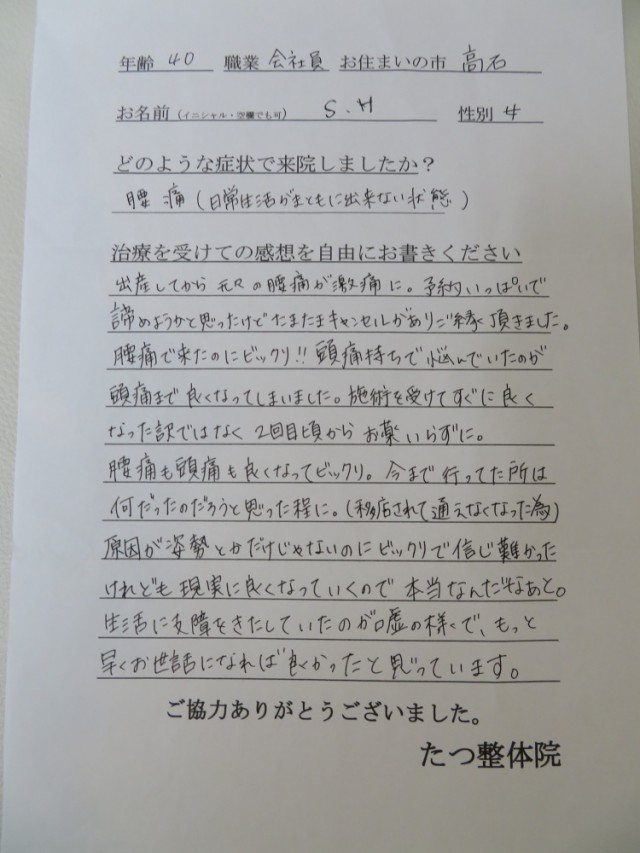 年齢 40 職業 会社員 お住まいの市 高石
お名前（イニシャル・空欄でも可） S.H 性別 女
どのような症状で来院しましたか？
腰痛（日常生活がまともに出来ない状態）
治療を受けての感想を自由にお書きください
出産してから元々の腰痛が激痛に。予約いっぱいで
諦めようかと思ったけどたまたまキャンセルがありご縁頂きました。
腰痛で来たのにビックリ!!頭痛持ちで悩んでいたのが
頭痛まで良くなってしまいました。施術を受けてすぐに良く
なった訳ではなく2回目頃からお薬いらずに。
腰痛も頭痛も良くなってビックリ。今まで行ってた所は
何だったのだろうと思った程に。（移店されて通えなくなった為）
原因が姿勢とかだけじゃないのにビックリで信じ難かった
けれども現実に良くなっていくので本当なんだなぁと。
生活に支障をきたしていたのが嘘の様で、もっと
早くお世話になれば良かったと思っています。
ご協力ありがとうございました。
たつ整体院